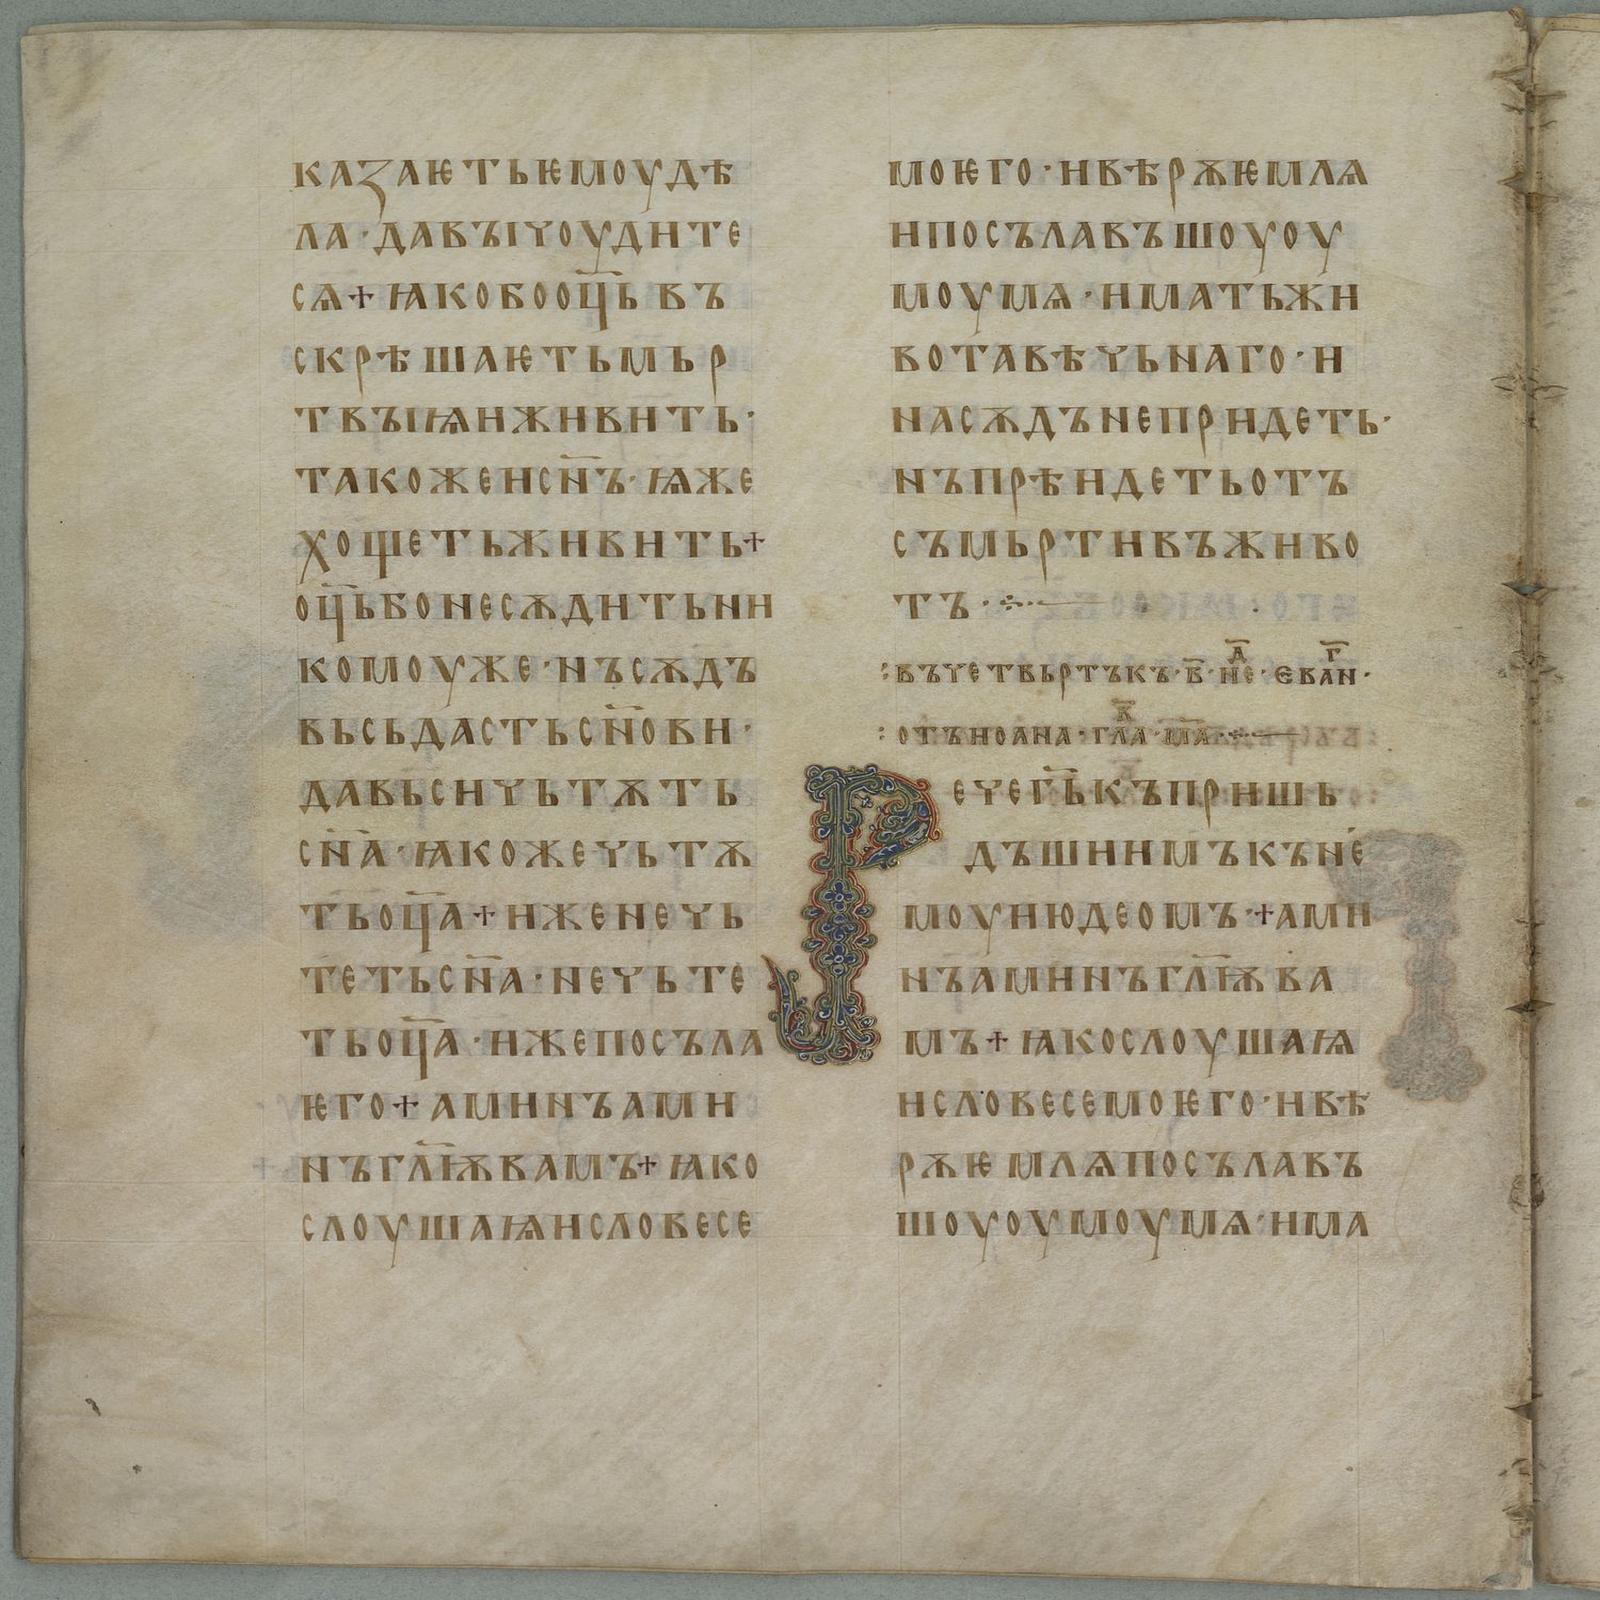 каꙁаѥтьѥмоудѣ
ла·давꙑчоудите
сѧ+ꙗкобооц҃ьвъ
скрѣшаѥтьмьр
твꙑѩиживить·
такожеисн҃ъ·ѩже
хощетьживить+
оц҃ьбонесѫдитьни
комоуже·нъсѫдъ
вьсьдастьсн҃ови·
давьсичьтѫть
сн҃а·ꙗкожечьтѫ
тьоц҃а+иженечь
тетьсн҃а·нечьте
тьоц҃а·ижепосъла
ѥго+аминъами
нъгл҃ѭвамъ+ꙗко
слоушаѩисловесе
моѥго·ивѣрѫѥмлѧ
ипосълавъшоуоу
моумѧ·иматьжи
вотавѣчьнаго·и
насѫдънепридеть·
нъпрѣидетьотъ
съмьртивъживо
тъ·
:въчетвьртъкъ·в҃·не·д҃·еван·г҃·
:отъиоана·гла·к҃·ма·
Речег҃ькъпришь
дъшиимъкъне
моуиюдеомъ·+ами
нъаминъгл҃ѭва
мъ+ꙗкослоушаѩ
исловесемоѥго·ивѣ
рѫѥмлѧпосълавъ
шоуоумоумѧ·има